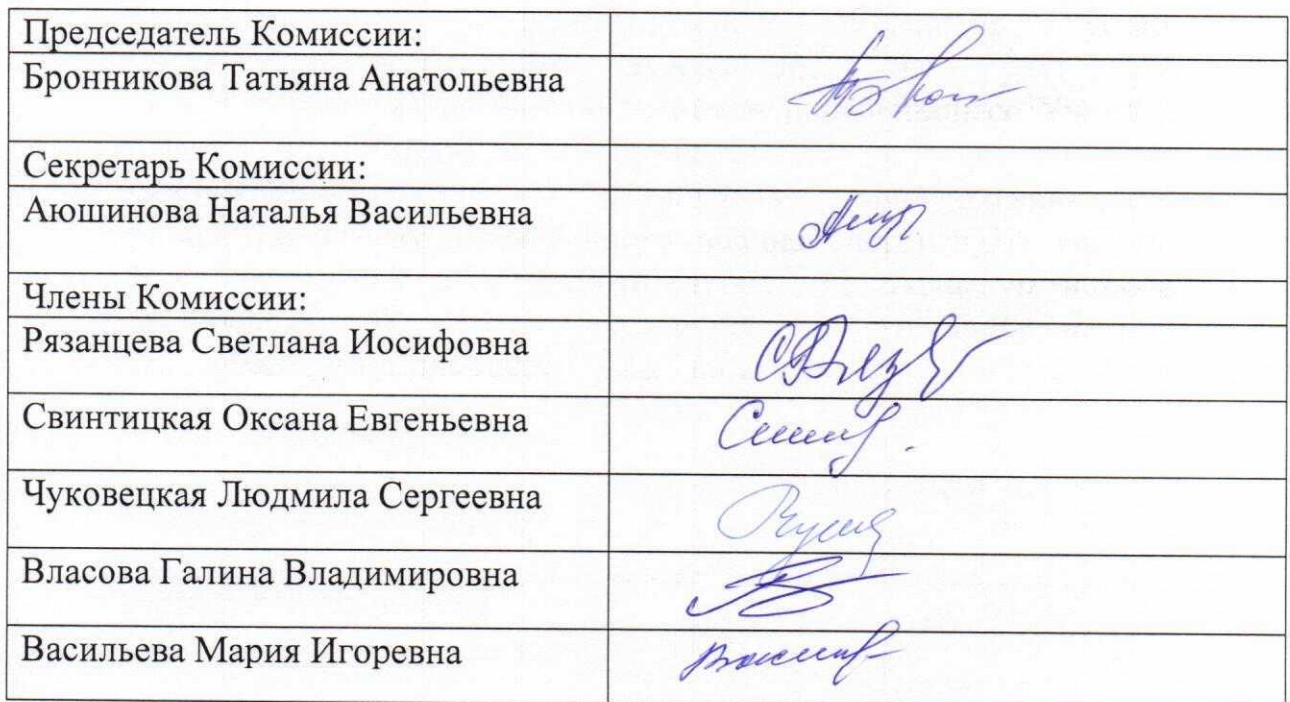 Председатель Комиссии:
Бронникова Татьяна Анатольевна
Секретарь Комиссии:
Аюшинова Наталья Васильевна
Члены Комиссии:
Рязанцева Светлана Иосифовна
Свинтицкая Оксана Евгеньевна
Чуковецкая Людмила Сергеевна
Власова Галина Владимировна
Васильева Мария Игоревна